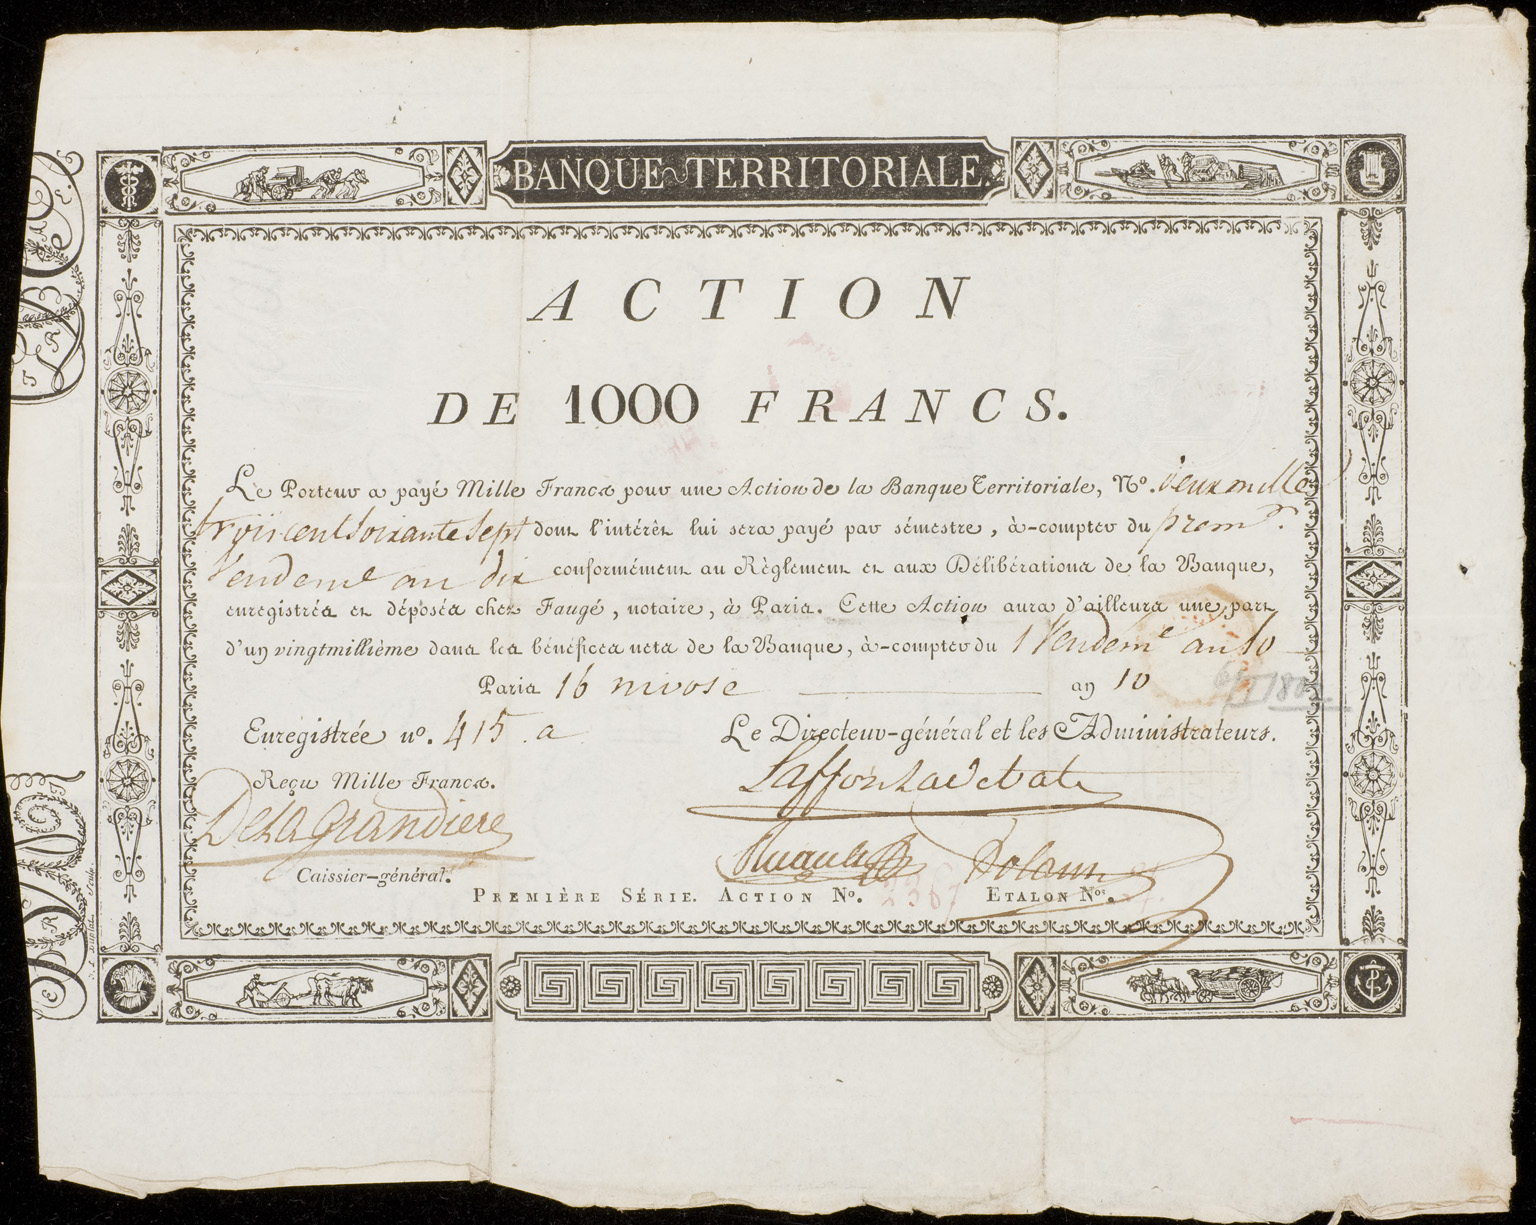 BANQUE TERRITORIALE.
ACTION
DE 1000 FRANCS.
Le Porteur a payé Mille Francs pour une Action de la Banque Territoriale, No. deux mille
trois cent soixante sept dont l'intérêt lui sera payé par sémestre, à-compter du prem.er
Vendemre an dix conformément au Règlement et aux Délibérations de la Banque,
enregistrés et déposés chez Faugé, notaire, à Paris. Cette Action aura d'ailleurs une part
d'un vingtmillième dans les bénéfices nets de la Banque, à-compter du 1 Vendeme an 10
Paris 16 nivose an 10
6/1 1802
Enregistrée no. 415. a
Le Directeur-général et les Administrateurs.
Reçu Mille Francs.
Delagrandiere
Caissier-général.
PREMIÈRE SÉRIE. ACTION No. 2367 ETALON Nos.